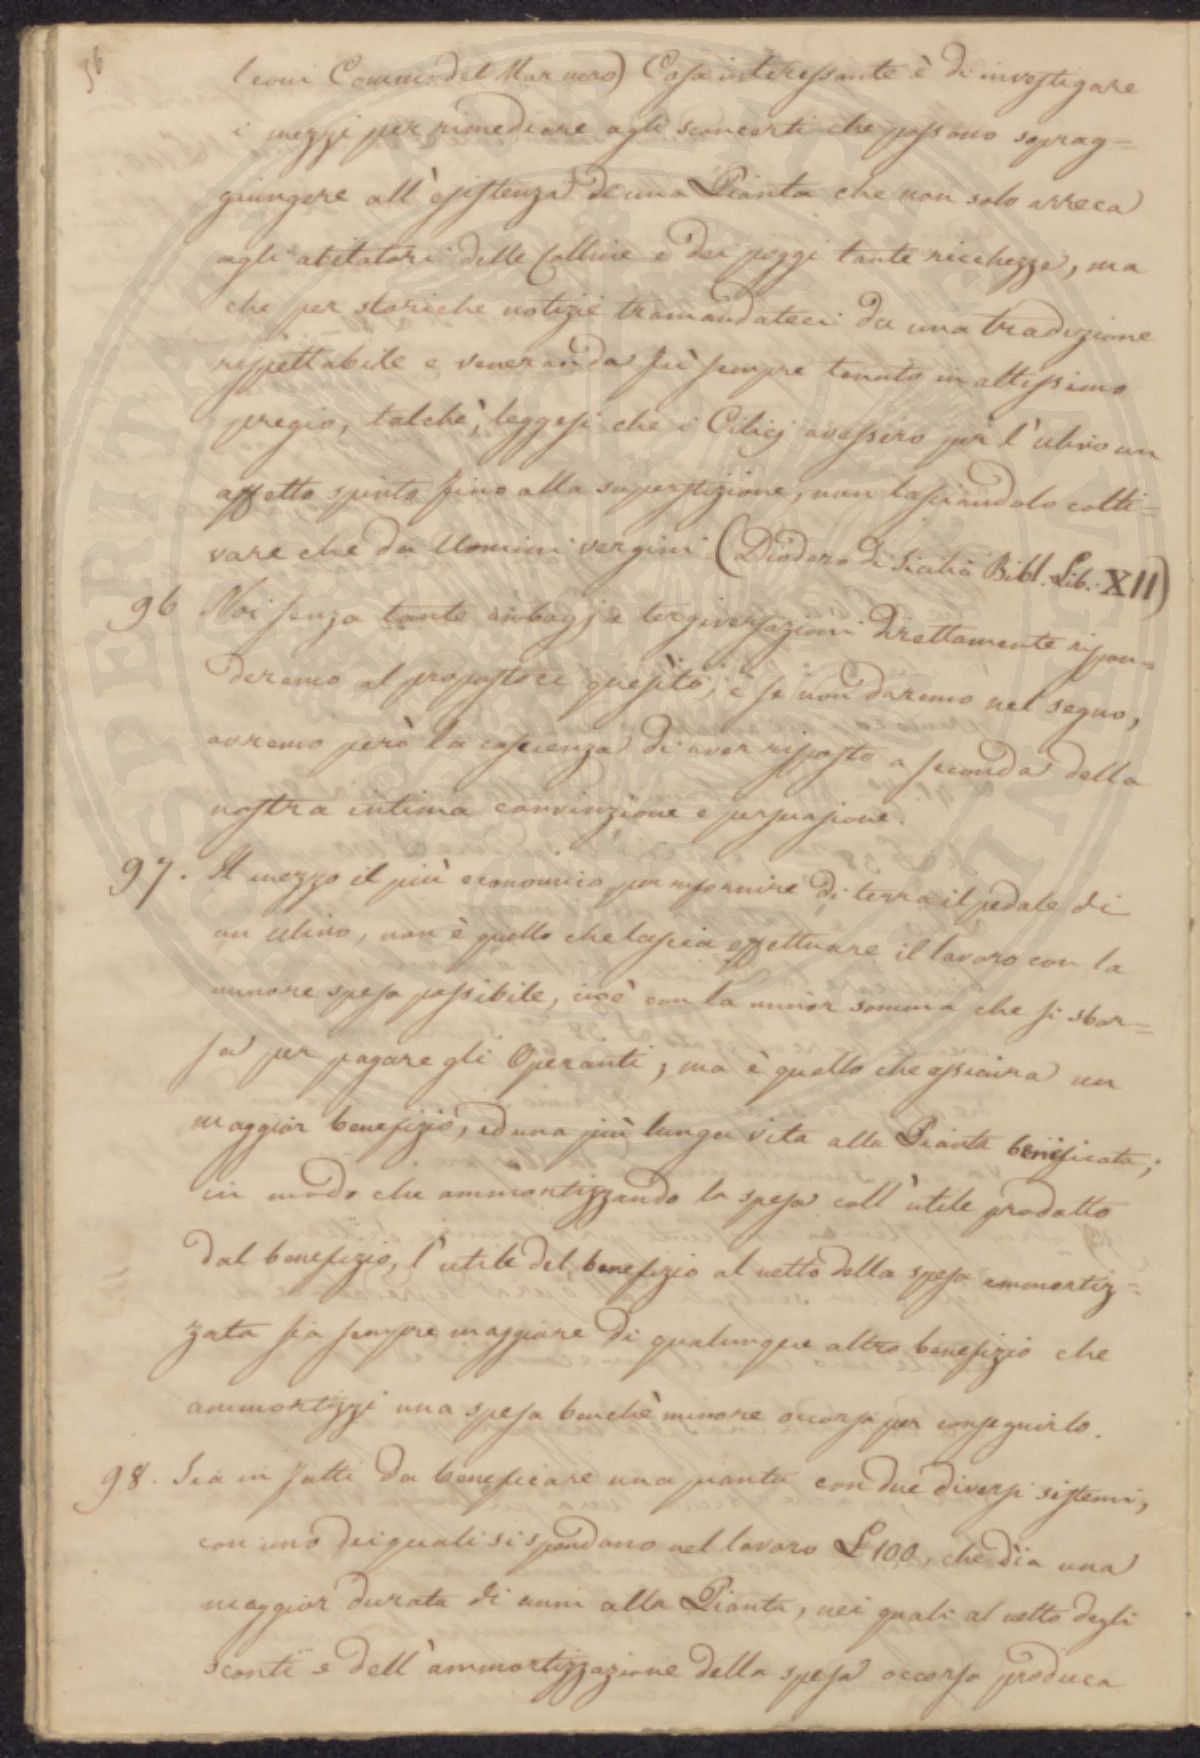 56
leoni Comm. del Mar nero) Cosa interessante è di investigare
i mezzi per rimediare agli sconcerti che possono soprag=
giungere all'esistenza di una Pianta che non solo arreca
agli abitatori delle Colline e dei poggi tante ricchezze, ma
che per storiche notizie tramandateci da una tradizione
rispettabile e veneranda fù sempre tenuto in altissimo
pregio, talchè, leggesi che i Cilicj avessero per l'ulivo un
affetto spinto fino alla superstizione, non lasciandolo colti=
vare che da Uomini vergini (Diodoro di Sicilia Bibl. Lib. XII)
96 Noi senza tante ambagj e tergiversazioni direttamente rispon=
deremo al propostoci quesito, e se non daremo nel segno,
avremo però la coscienza di aver risposto a seconda della
nostra intima convinzione e persuasione.
97. Il mezzo il più economico per rifornire di terra il pedale di
un ulivo, non è quello che lascia effettuare il lavoro con la
minore spesa possibile, cioè con la minor somma che si sbor=
sa per pagare gli Operanti, ma è quello che assicura un
maggior benefizio, ed una più lunga vita alla Pianta beneficata;
in modo che ammortizzando la spesa coll'utile prodotto
dal benefizio, l'utile del benefizio al netto della spesa ammortiz=
zata sia sempre maggiore di qualunque altro benefizio che
ammortizzi una spesa benchè minore occorsa per conseguirlo.
98. Sia in fatti da beneficare una pianta con due diversi sistemi,
con uno dei quali si spendano nel lavoro £ 100, che dia una
maggior durata di anni alla Pianta, nei quali al netto degli
sconti e dell'ammortizzazione della spesa occorsa produca
SPERITAS PUBLICA